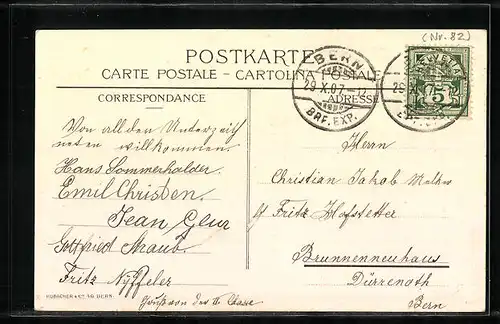 (Nr. 82)
POSTKARTE
CARTE POSTALE - CARTOLINA POSTALE
BERN
29.X.07.-12
BRF. EXP.
HELVETIA
5
29.X.
CORRESPONDANCE
ADRESSE
Von all den Unterzeich
neten willkommen.
Hans Sommerhalder.
Emil Christen.
Jean
Gottfried
Fritz Nyffeler
Herrn
Christian Jakob
Fritz Hofstetter
Brunnenneuhaus
Dürrenroth
Bern
von der II